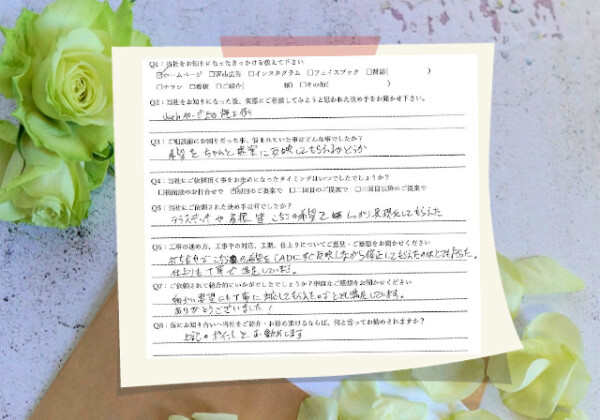 Q1：当社をお知りになったきっかけを教えて下さい
☑ホームページ □Web広告 □インスタグラム □フェイスブック □雑誌( )
□チラシ □看板 □ご紹介( 様) □その他( )
Q2：当社をお知りになった後、実際にご相談してみようと思われた決め手をお聞かせ下さい。
Webページ上の施工例
Q3：ご相談前にお困りだった事、悩まれていた事はどんな事でしたか？
希望をちゃんと忠実に反映してもらえるかどうか
Q4：当社にご依頼頂く事をお決めになったタイミングはいつでしたでしょうか？
□初回のご提案で □二回目のご提案で □三回目以降のご提案で
Q5：当社にご依頼された決め手は何でしたか？
や 屋根 皆 こちらの希望を しっかり 具現化してもらえた
Q6：工事の進め方、工事手の対応、工期、仕上りについてご意見・ご感想をお聞かせください
打ち合わせでこちらの希望をCADにすぐ反映しながら修正してもらえたのはとても良かった。
仕上りも丁寧で満足しています。
Q7：ご依頼されて総合的にいかがでしたでしょうか？率直なご感想をお聞かせください
細かい要望にも丁寧に対応してもらえたのでとても満足しています。
ありがとうございました！
Q8：仮にお知り合いへ当社をご紹介・お勧め頂けるならば、何と言ってお勧めされますか？
上記のポイントを お勧めします